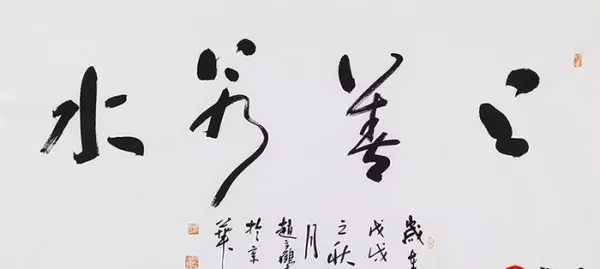 上善若水
歲在
戊戌
之秋
月
趙
於京
華